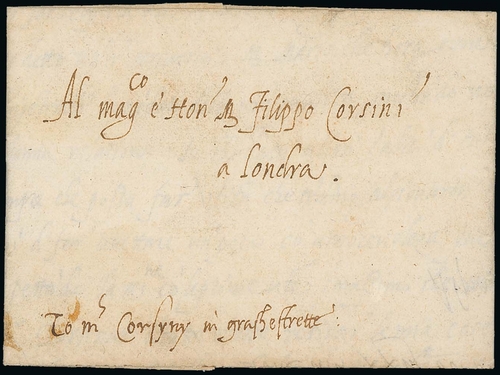 Al mag.co e Hon. M Filippo Corsini
a Londra.
To mr Corsyny in grasshestrette